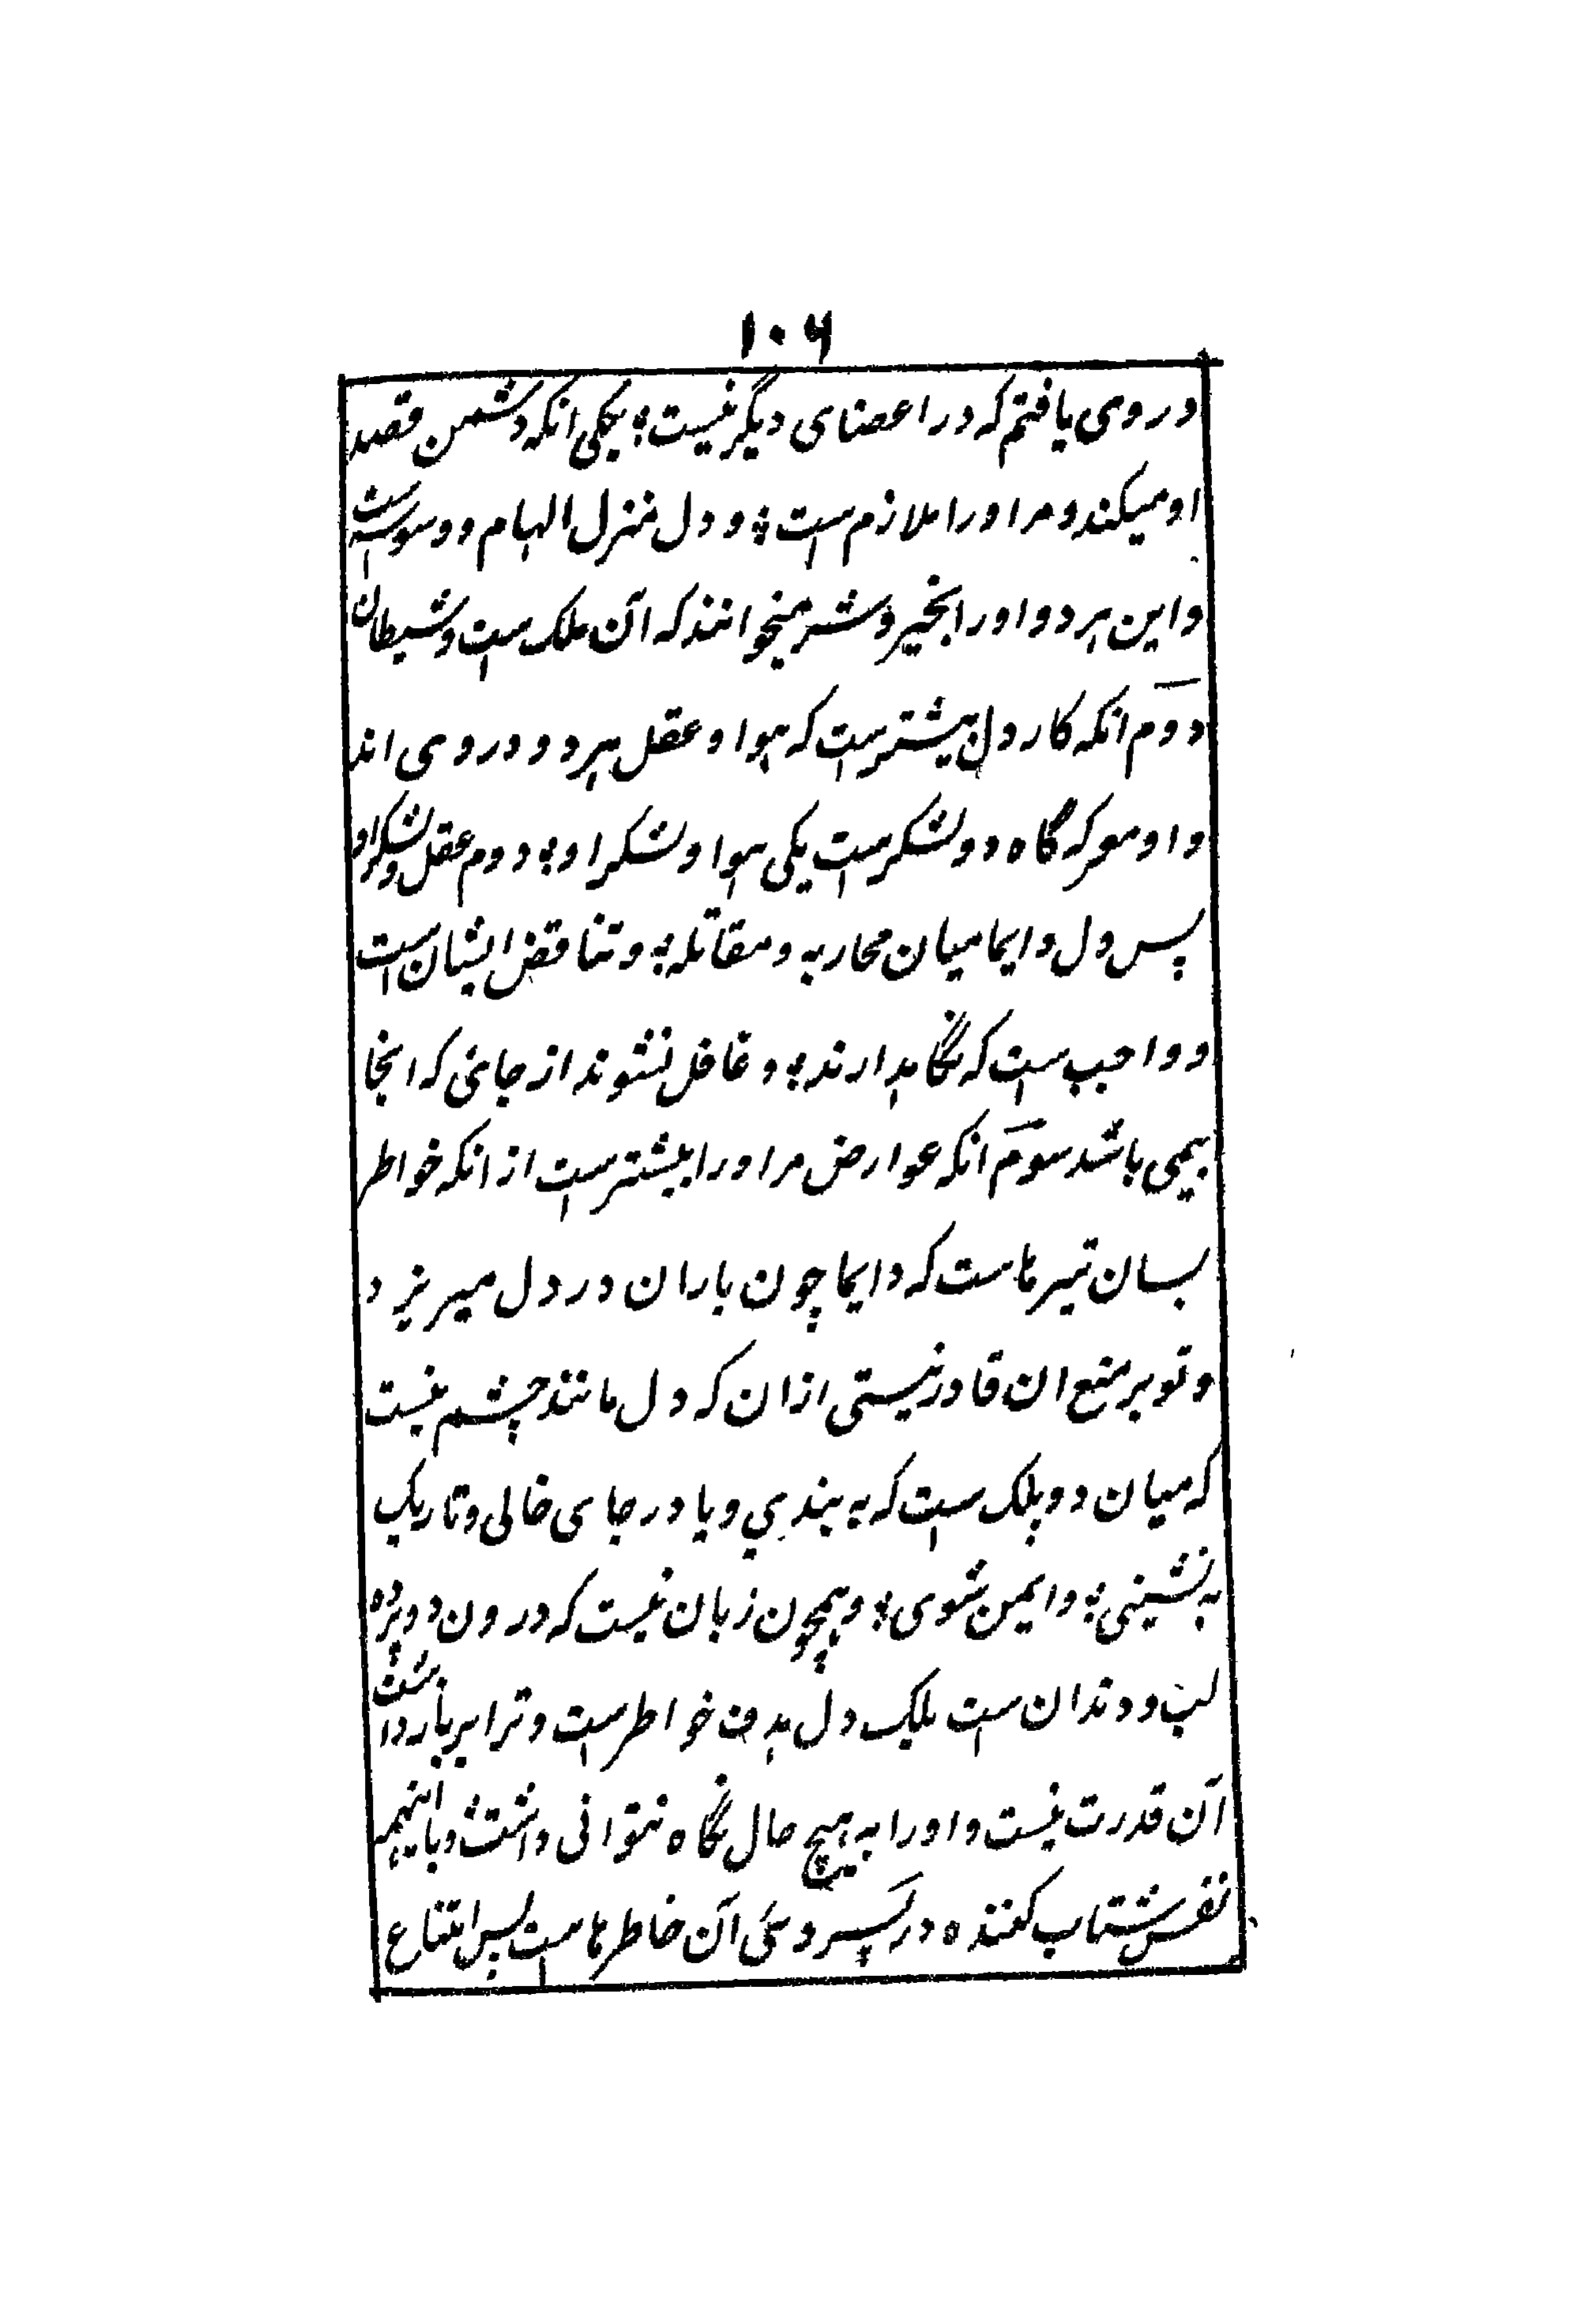 ۱۰۶
در وی یافتم که در اعضای دیگر نیست؛ یکی انکه دشمن قصد
او میکند و مر او را ملازم است؛ و دل منزل الهام و وسوسه است
و این هر دو او را بخیر و شر میخوانند که آن ملک است و شیطان
دوم انکه کار دل بیشترست که هوا و عقل هر دو در وی اند
و او معرکه گاه دو لشکرست یکی هوا و لشکر او؛ دوم عقل و لشکر او
پس دل دایما میان محاربه و مقاتله؛ و تناقض ایشان است
و واجب است که نگاهدارند؛ و غافل نشوند از جائی که انجا
بیمی باشد سوم انکه عوارض مر او را بیشترست از انکه خواطر
بسان تیرهاست که دایما چون باران در دل میریزد
و تو بر منع ان قادر نیستی ازان که دل مانند چشم نیست
که میان دو پلک است که به بندی و یا در جای خالی و تاریک
به نشینی؛ و ایمن شوی؛ و همچون زبان نیست که درون دو پرده
لب و دندان است بلیک دل هدف خواطرست و ترا بر بازداشت
آن قدرت نیست و او را به هیچ حال نگاه نتوانی داشت و با اینهمه
نفس شتاب کننده در پسروئ آن خاطرهاست پس امتناع